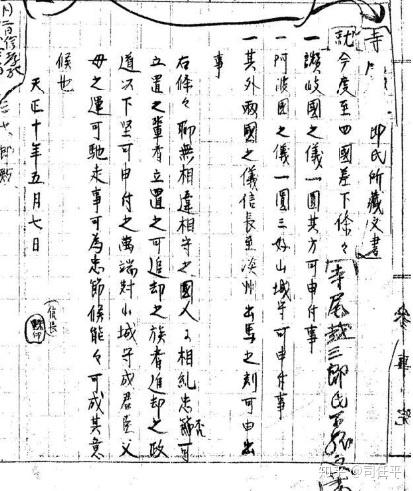 寺尾越三郎氏
郎氏所藏文書
就今度至四國差下條々
一讃岐國之儀一圓其方可申付事
一阿波國之儀一圓三好山城守可申付事
一其外兩國之儀信長至淡州出馬之刻可申出
事
右條々聊無相違相守之國人々相糺忠節可
否
立置之輩者立置之可追却之族者追却之政
道以下堅可申付之萬端対山城守成君臣父
母之運可馳走事可為忠節候能々可成其意
候也
天正十年五月七日
信長
三七郎殿
知乎